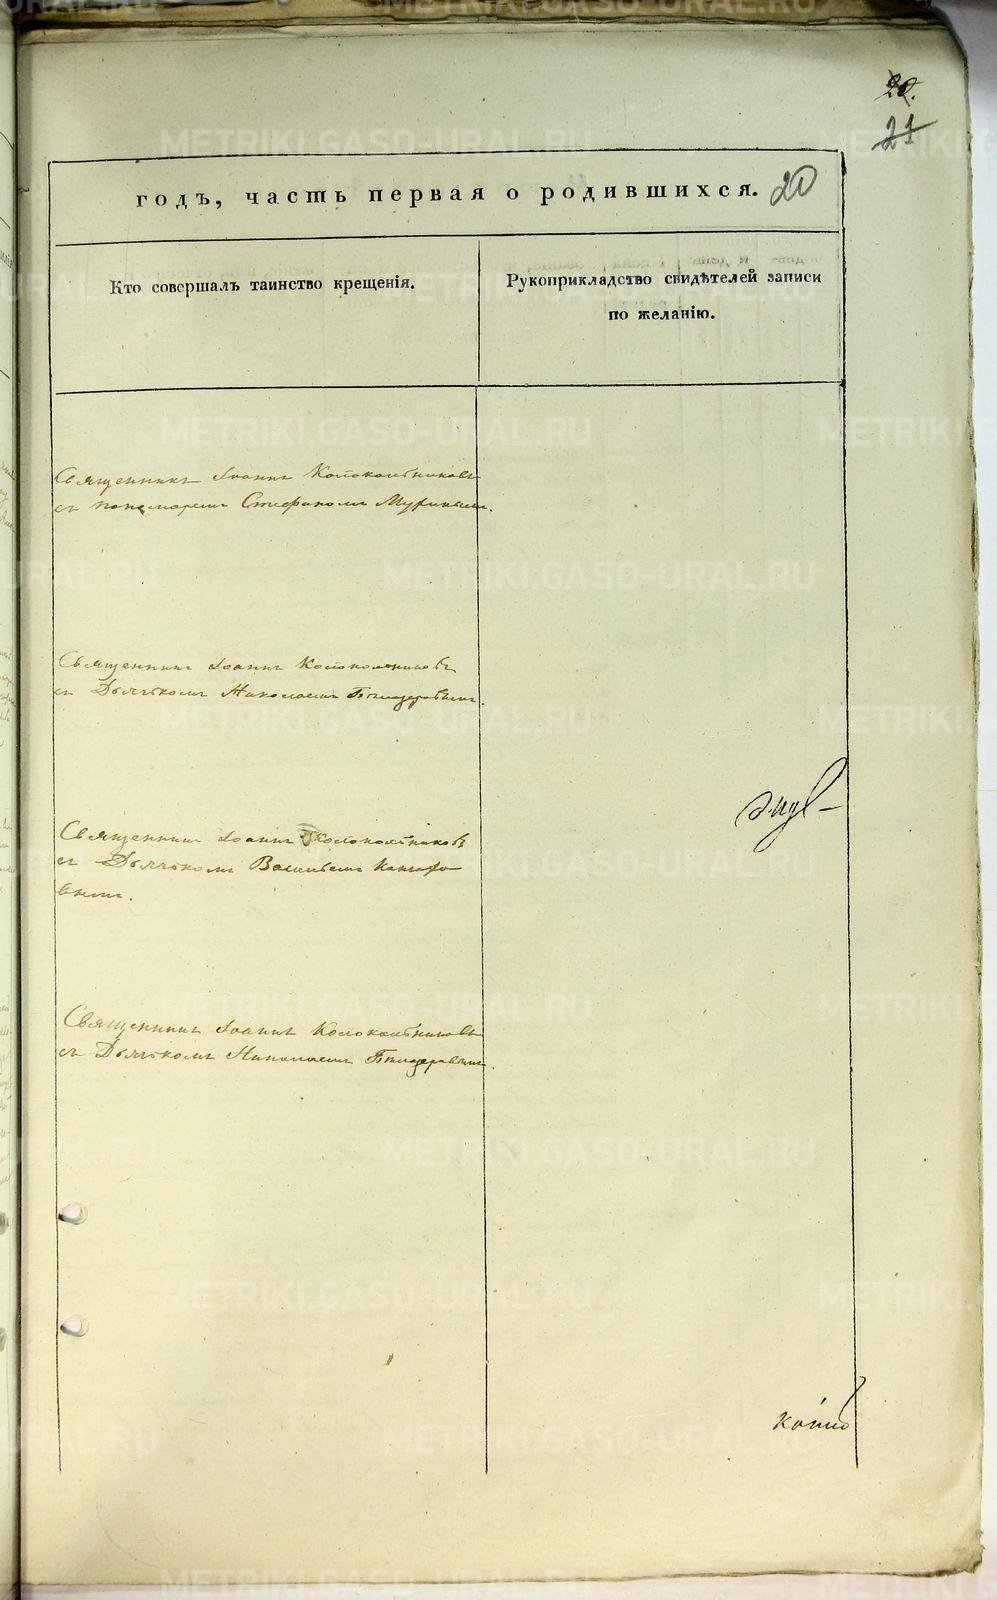 20.
21
годъ, часть первая о родившихся. 20
Кто совершалъ таинство крещенія.
Рукоприкладство свидѣтелей записи
по желанію.
Священникъ Іоаннъ Колокольниковъ
съ пономаремъ Стефаномъ Муринымъ.
Священникъ Іоаннъ Колокольниковъ
съ Дьячкомъ Николаемъ
Священникъ Іоаннъ Колокольниковъ
съ Дьячкомъ Василіемъ
Священникъ Іоаннъ Колокольниковъ
съ Дьячкомъ Николаемъ
METRIKI.GASO-URAL.RU